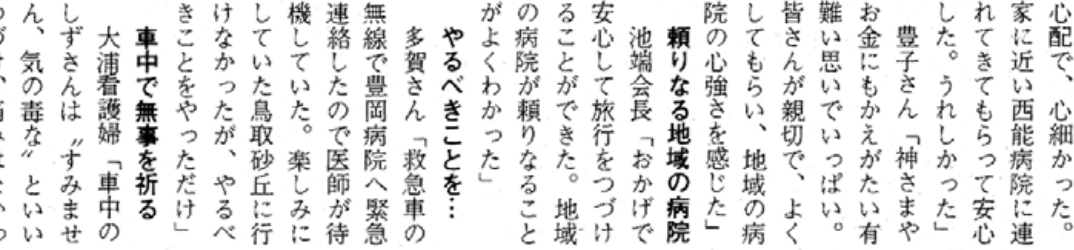 心配で、心細かった。
家に近い西能病院に連
れてきてもらって安心
した。うれしかった」
豊子さん「神さまや
お金にもかえがたい有
難い思いでいっぱい。
皆さんが親切で、よく
してもらい、地域の病
院の心強さを感じた」
頼りなる地域の病院
池端会長「おかげで
安心して旅行をつづけ
ることができた。地域
の病院が頼りなること
がよくわかった」
やるべきことを…
多賀さん「救急車の
無線で豊岡病院へ緊急
連絡したので医師が待
機していた。楽しみに
していた鳥取砂丘に行
けなかったが、やるべ
きことをやっただけ」
車中で無事を祈る
大浦看護婦「車中の
しずさんは〝すみませ
ん、気の毒な〟といい